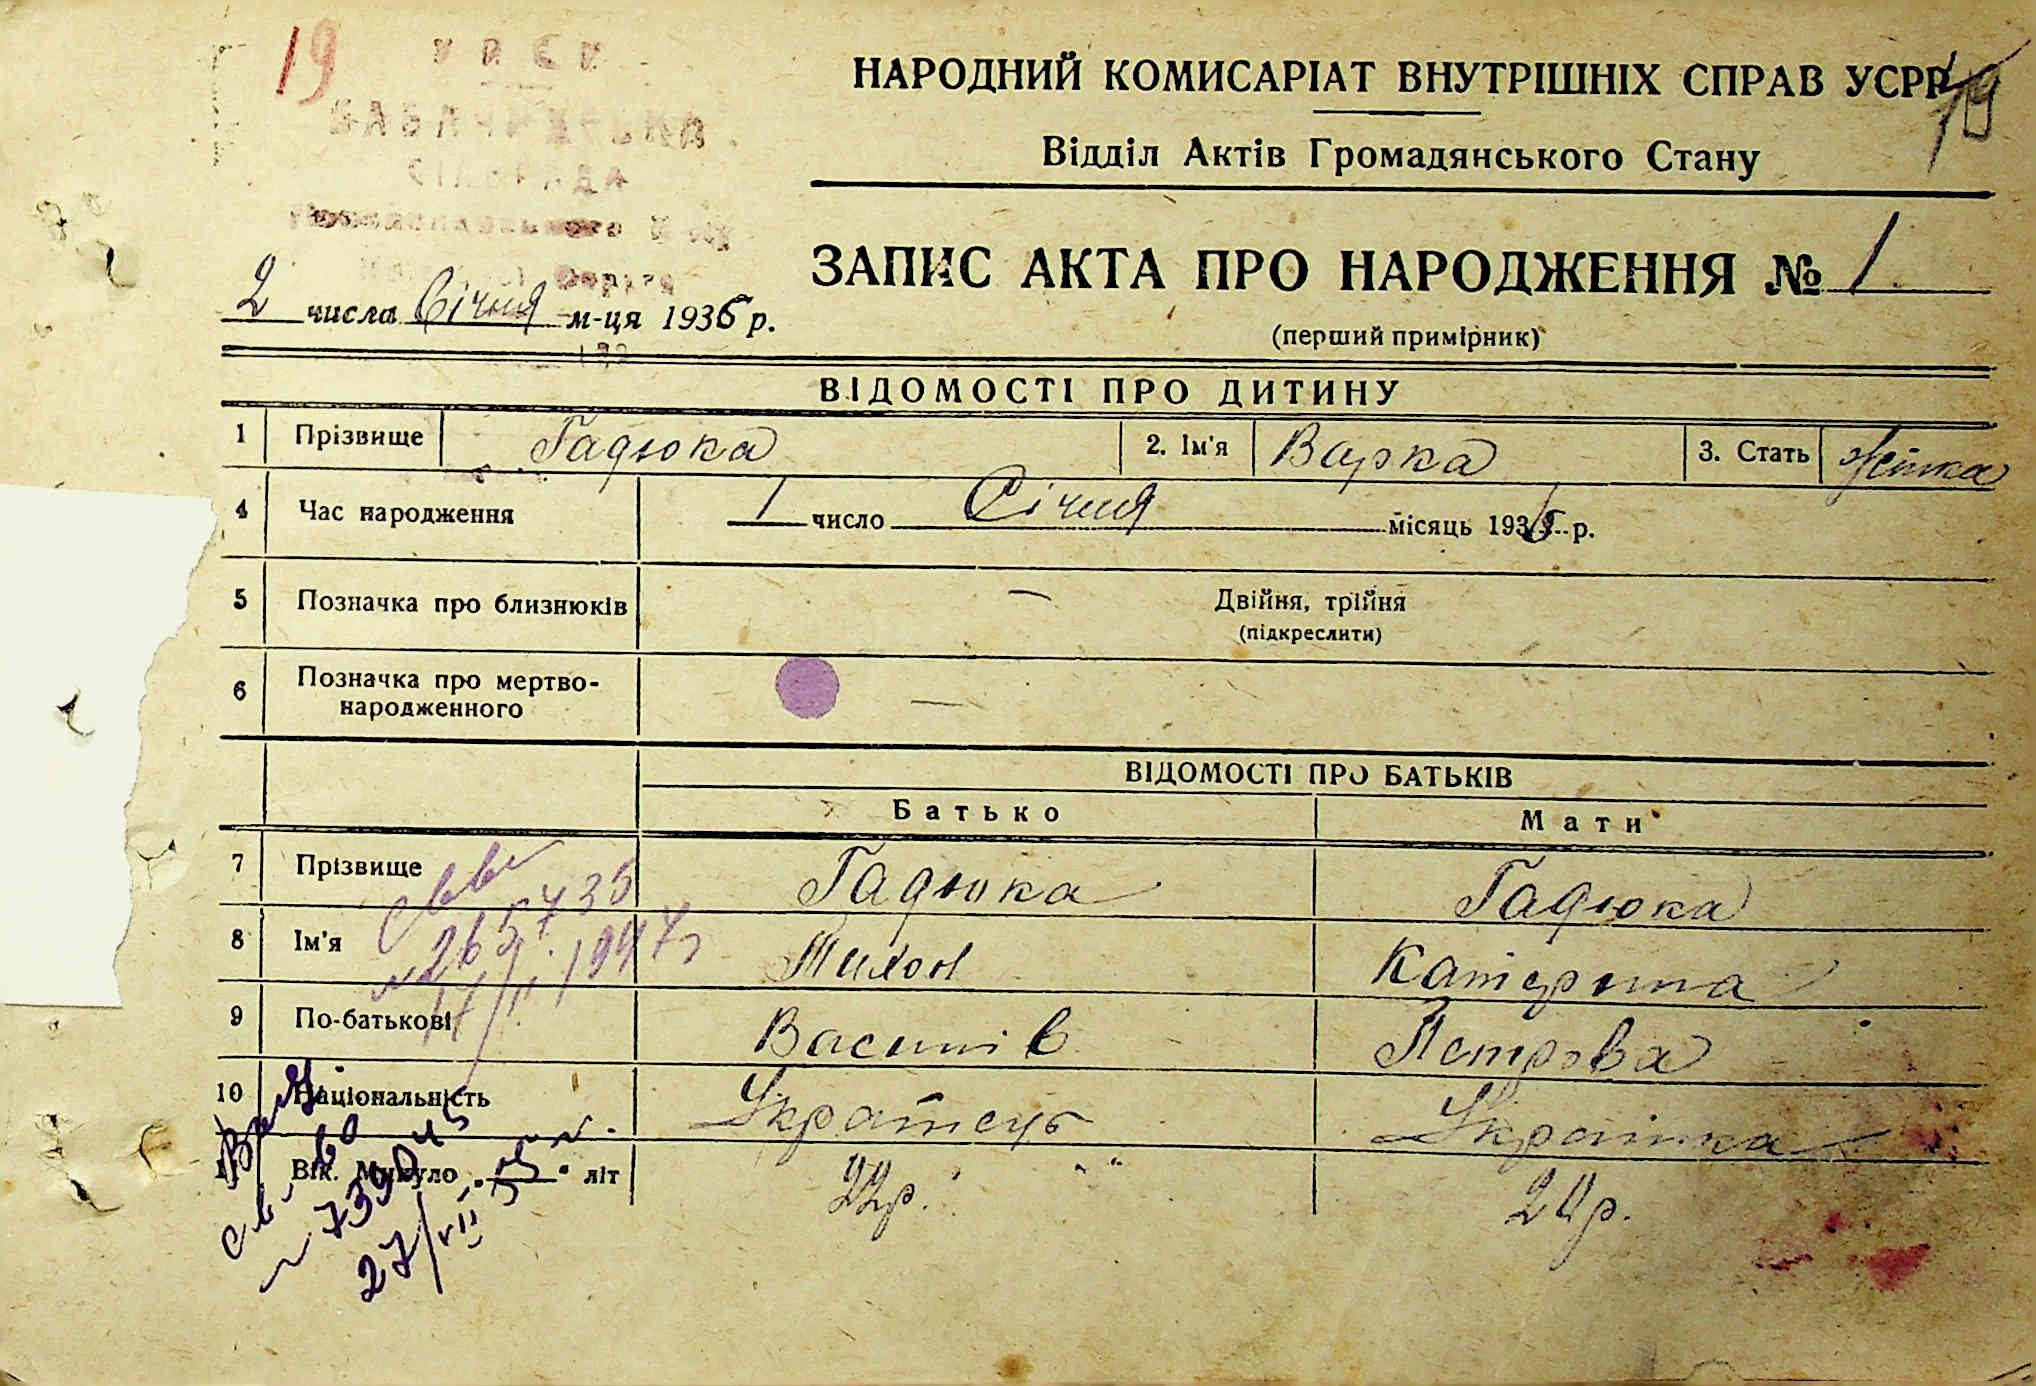 19
НАРОДНИЙ КОМИСАРІАТ ВНУТРІШНІХ СПРАВ УСРР
19
Відділ Актів Громадянського Стану
ЗАПИС АКТА ПРО НАРОДЖЕННЯ № 1
2 числа Січня м-ця 1936 р.
(перший примірник)
ВІДОМОСТІ ПРО ДИТИНУ
1 Прізвище Гадюка 2. Ім'я Варка 3. Стать Жінка
4 Час народження 1 число Січня місяць 193 р.
5 Позначка про близнюків — Двійня, трійня
(підкреслити)
6 Позначка про мертво-
народженного —
ВІДОМОСТІ ПРО БАТЬКІВ
Батько Мати
7 Прізвище Гадюка Гадюка
8 Ім'я Тихон Катерина
9 По-батькові Василів Петрова
10 Національність Українець Українка
11 Вік. Минуло літ 22р. 24р.
265735
17/II 1947
27/VII